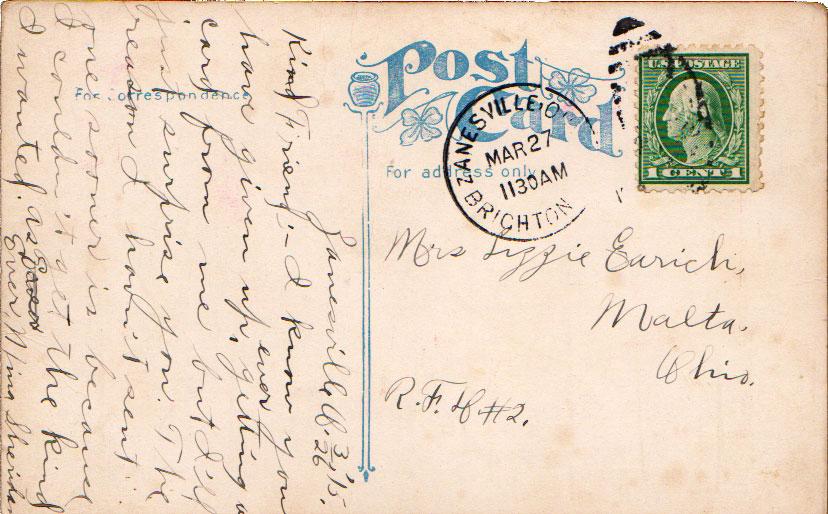 Post Card
For correspondence
For address only.
U.S. POSTAGE
1 CENT 1
ZANESVILLE, O.
MAR 27
1130 AM
BRIGHTON
Mrs Lizzie Earich,
Malta.
Ohio.
R.F.D #2.
Zanesville O. 3/26 '15.
Kind Friend:- I know you
have given up, ever getting a
card from me but I'll
just surprise you. The
reason I havn't sent
one sooner is because
I couldn't get the kind
I wanted. As
Ever, Mina Sheridan